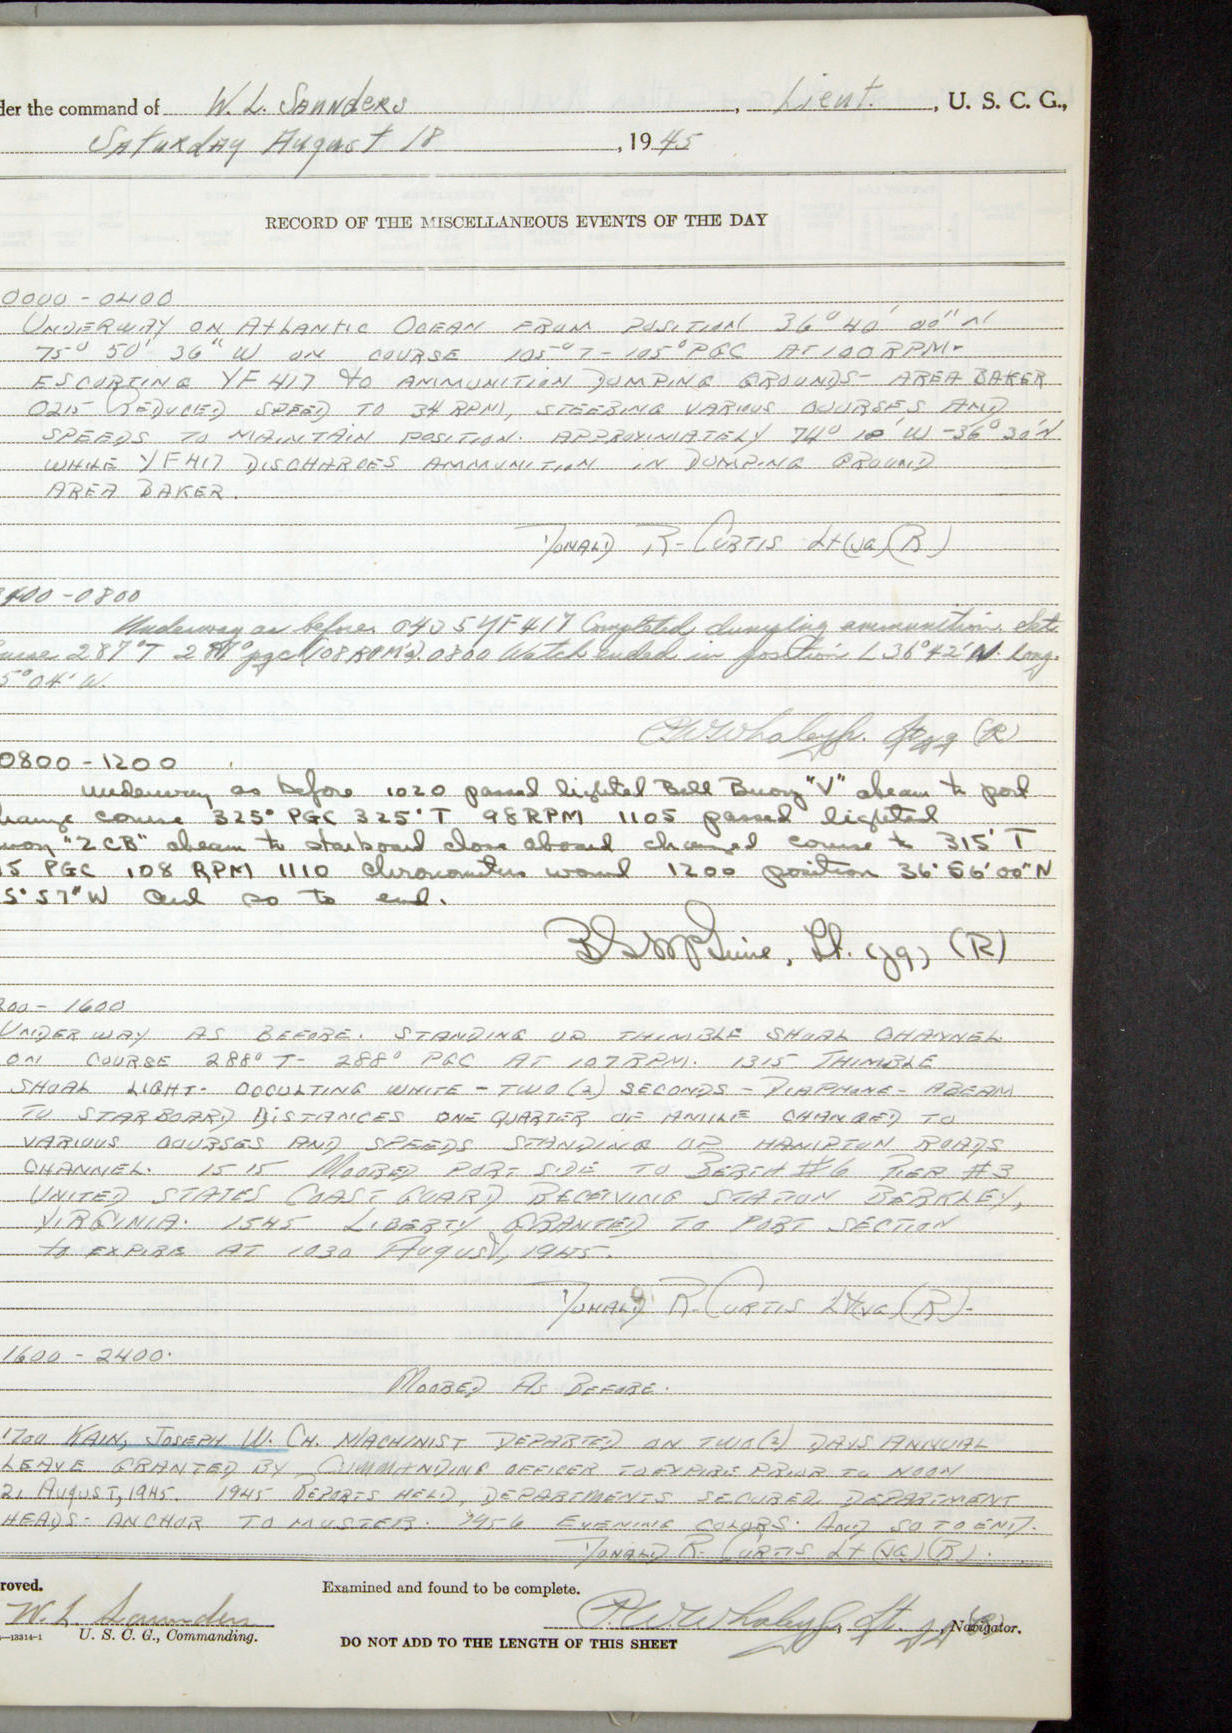 der the command of W. L. Saunders, Lieut., U. S. C. G.,
Saturday August 18, 1945
RECORD OF THE MISCELLANEOUS EVENTS OF THE DAY
0000 - 0400
UNDERWAY ON ATLANTIC OCEAN FROM POSITION 36° 40' 00" N
75° 50' 36" W ON COURSE 105° T - 105° PGC AT 100 RPM.
ESCORTING YF 417 TO AMMUNITION DUMPING GROUNDS - AREA BAKER
0215 REDUCED SPEED TO 34 RPM, STEERING VARIOUS COURSES AND
SPEEDS TO MAINTAIN POSITION. APPROXIMATELY 74° 18' W - 36° 30' N
WHILE YF 417 DISCHARGES AMMUNITION IN DUMPING GROUND
AREA BAKER.
DONALD R. CURTIS Lt (JG) (R)
400 - 0800
Underway as before. 0405 YF 417 Completed dumping ammunition. Set
urse 287°T 287° pgc (108 RPM's). 0800 Watch ended in position L 36°42' N. Long.
5°04' W.
P.W. Whaley Jr. Lt. jg (R)
0800 - 1200
underway as before 1020 passed lighted Bell Buoy "V" abeam to port
hange course 325° PGC 325° T 98 RPM 1105 passed lighted
uoy "2CB" abeam to starboard close aboard changed course to 315° T
15 PGC 108 RPM 1110 chronometers wound 1200 position 36° 56' 00" N
5° 57" W and so to end.
McGuire, Lt. (jg) (R)
200 - 1600
UNDER WAY AS BEFORE. STANDING UP THIMBLE SHOAL CHANNEL
ON COURSE 288° T - 288° PGC AT 107 RPM. 1315 THIMBLE
SHOAL LIGHT - OCCULTING WHITE - TWO (2) SECONDS - DIAPHONE - ABEAM
TO STARBOARD DISTANCES ONE QUARTER OF A MILE CHANGED TO
VARIOUS COURSES AND SPEEDS STANDING UP HAMPTON ROADS
CHANNEL. 1515 MOORED PORT SIDE TO BERTH #6 PIER #3
UNITED STATES COAST GUARD RECEIVING STATION BERKLEY,
VIRGINIA. 1545 LIBERTY GRANTED TO PORT SECTION
to EXPIRE AT 1030 AUGUST, 1945.
DONALD R. CURTIS Lt (JG) (R).
1600 - 2400.
MOORED AS BEFORE.
1700 KAIN, JOSEPH W. CH. MACHINIST DEPARTED ON TWO (2) DAYS ANNUAL
LEAVE GRANTED BY COMMANDING OFFICER TO EXPIRE PRIOR TO NOON
21 AUGUST, 1945. 1945 REPORTS HELD, DEPARTMENTS SECURED, DEPARTMENT
HEADS - ANCHOR TO MUSTER. 1956 EVENING COLORS. AND SO TO END.
DONALD R. CURTIS Lt (JG) (R).
roved.
Examined and found to be complete.
W. L. Saunders
P.W. Whaley Jr., Lt. jg (R), Navigator.
—13314-1 U. S. C. G., Commanding.
DO NOT ADD TO THE LENGTH OF THIS SHEET